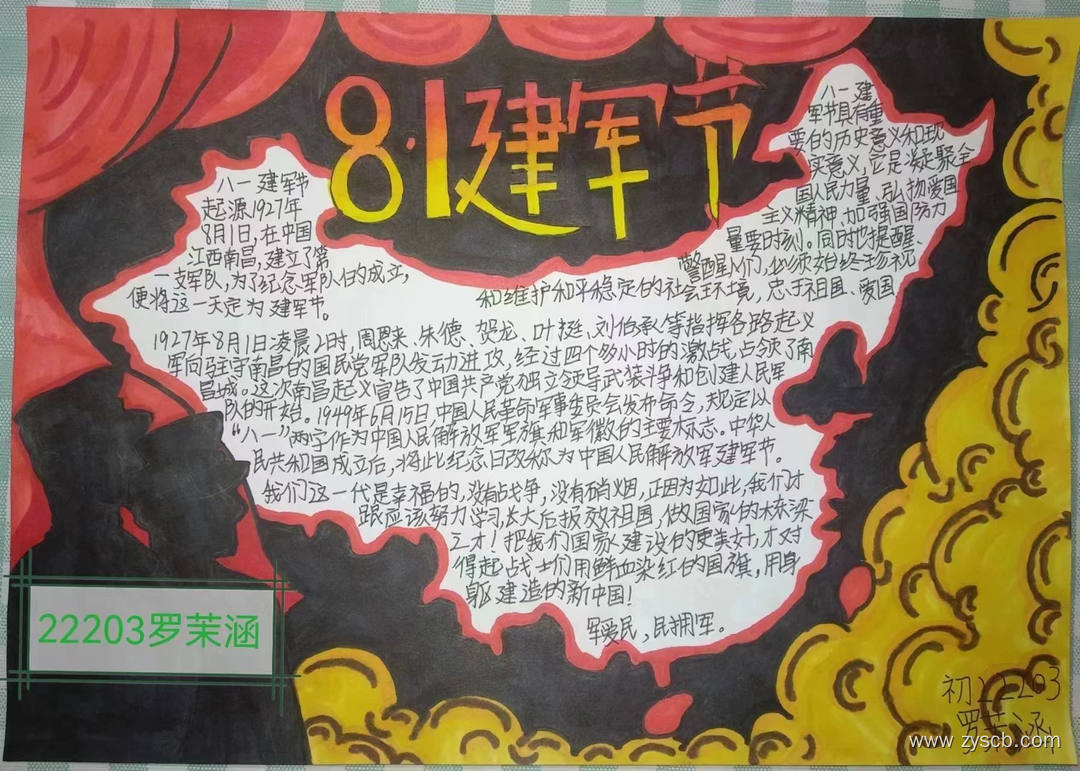 8.1建军节
八一建军节
起源1927年
8月1日,在中国
江西南昌,建立了第
一支军队,为了纪念军队的成立,
便将这一天定为建军节。
八一建
军节具有重
要的历史意义和现
实意义,它是凝聚全
国人民力量,弘扬爱国
主义精神,加强国防力
量要时刻。同时也提醒、
警醒人们,必须始终珍视
和维护和平稳定的社会环境,忠于祖国、爱国
1927年8月1日凌晨2时,周恩来、朱德、贺龙、叶挺、刘伯承等指挥各路起义
军向驻守南昌的国民党军队发动进攻,经过四个多小时的激战,占领了南
昌城。这次南昌起义宣告了中国共产党独立领导武装斗争和创建人民军
队的开始。1949年6月15日中国人民革命军事委员会发布命令,规定以
“八一”两字作为中国人民解放军军旗和军徽的主要标志。中华人
民共和国成立后,将此纪念日改称为中国人民解放军建军节。
我们这一代是幸福的,没有战争,没有硝烟,正因为如此,我们才
跟应该努力学习,长大后报效祖国,做国家的栋梁
之才!把我们国家建设的更美好,才对
得起战士们用鲜血染红的国旗,用身
躯建造的新中国!
军爱民,民拥军。
22203罗茉涵
初22203
罗茉涵
www.zyscb.com